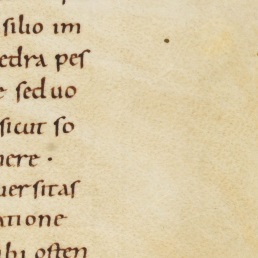 silio im
edra pes
e sed uo
sicut so
nere ·
uersitas
atione
ubi osten